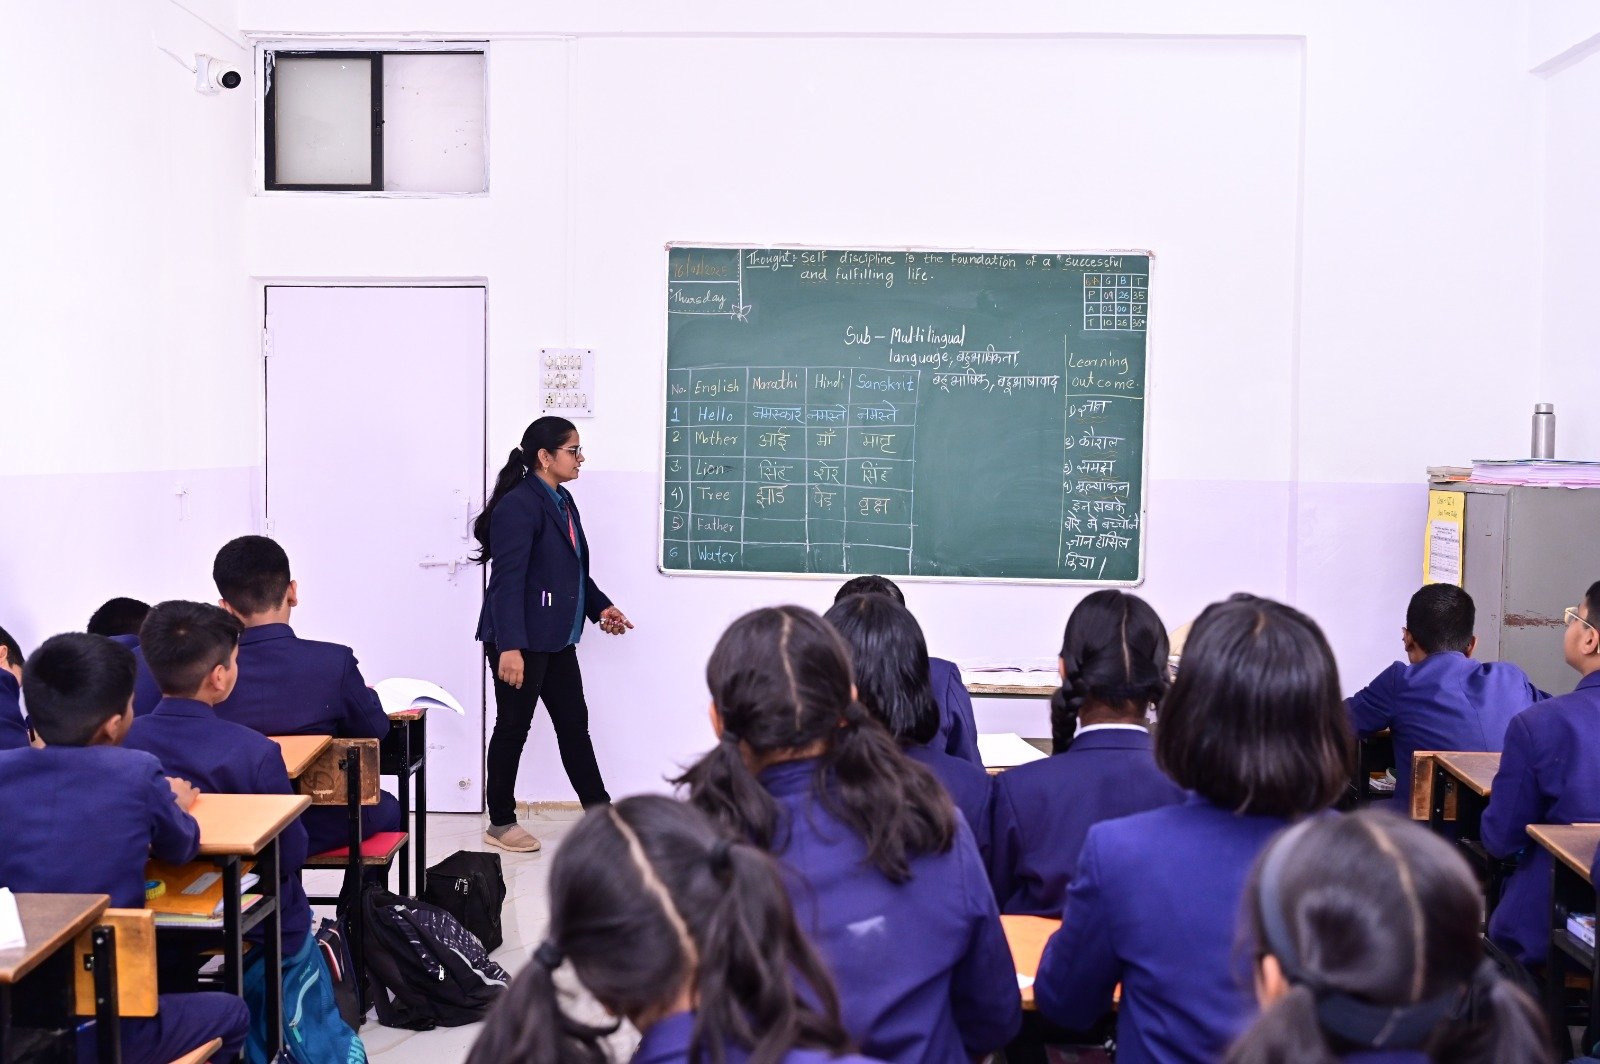 Thought: Self discipline is the foundation of a successful
and fulfilling life.
16/01/2025
Thursday
G B T
P 09 26 35
A 01 00 01
T 10 26 36
Sub - Multilingual
language, बहुभाषिकता,
बहुभाषिक, बहुभाषावाद
No. English Marathi Hindi Sanskrit
1 Hello नमस्कार नमस्ते नमस्ते
2 Mother आई माँ मातृ
3. Lion सिंह शेर सिंह
4) Tree झाड पेड़ वृक्ष
5) Father
6 Water
Learning
outcome.
1) ज्ञान
2) कौशल
3) समझ
4) मूल्यांकन
इन सबके
बारे में बच्चोंने
ज्ञान हासिल
किया /